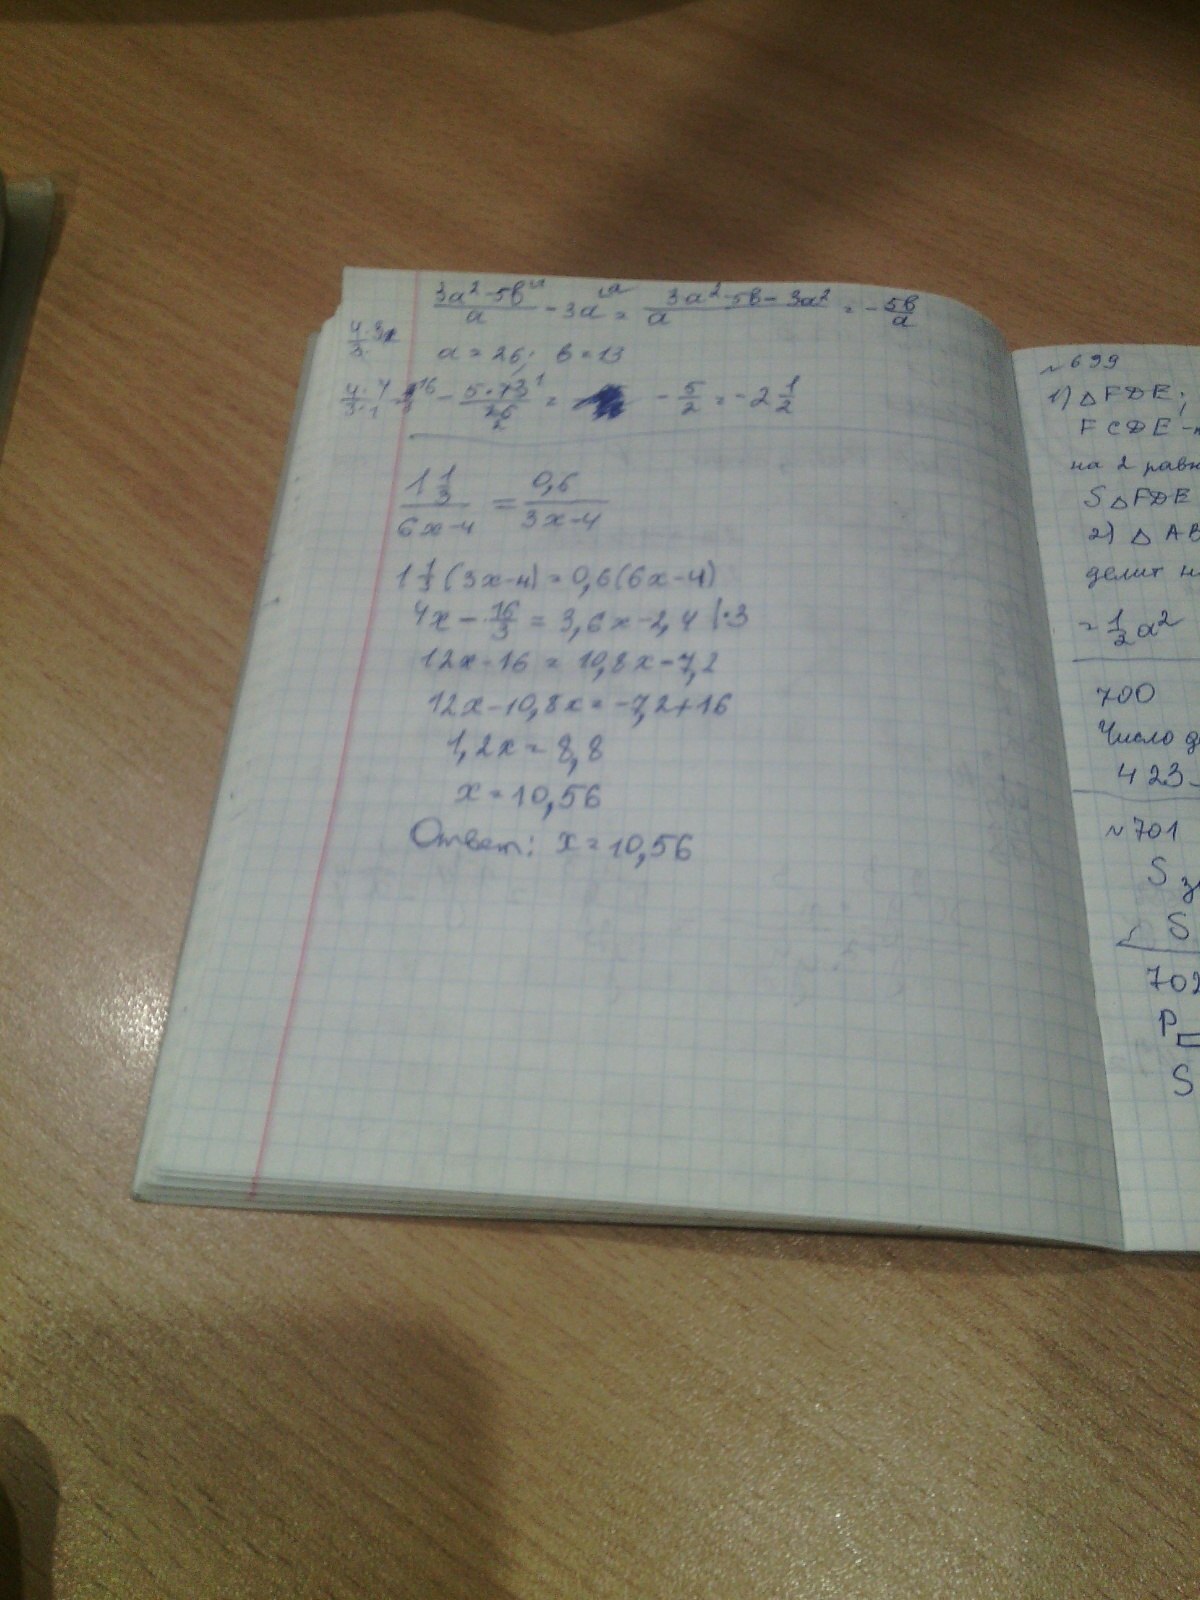 (3a²-5b)/a - 3a = (3a²-5b-3a²)/a = -5b/a
a = 26; b = 13
-(5·13)/26 = -5/2 = -2 1/2
(1 1/3)/(6x-4) = 0,6/(3x-4)
1 1/3 (3x-4) = 0,6(6x-4)
4x - 16/3 = 3,6x-2,4 |·3
12x-16 = 10,8x-7,2
12x-10,8x = -7,2+16
1,2x = 8,8
x = 10,56
Ответ: x = 10,56
№699
1) △FDE;
FCDE -
на 2
S△FDE
2) △AB
делит
= 1/2 a²
700
Число
423
№701
S
S
702
P
S